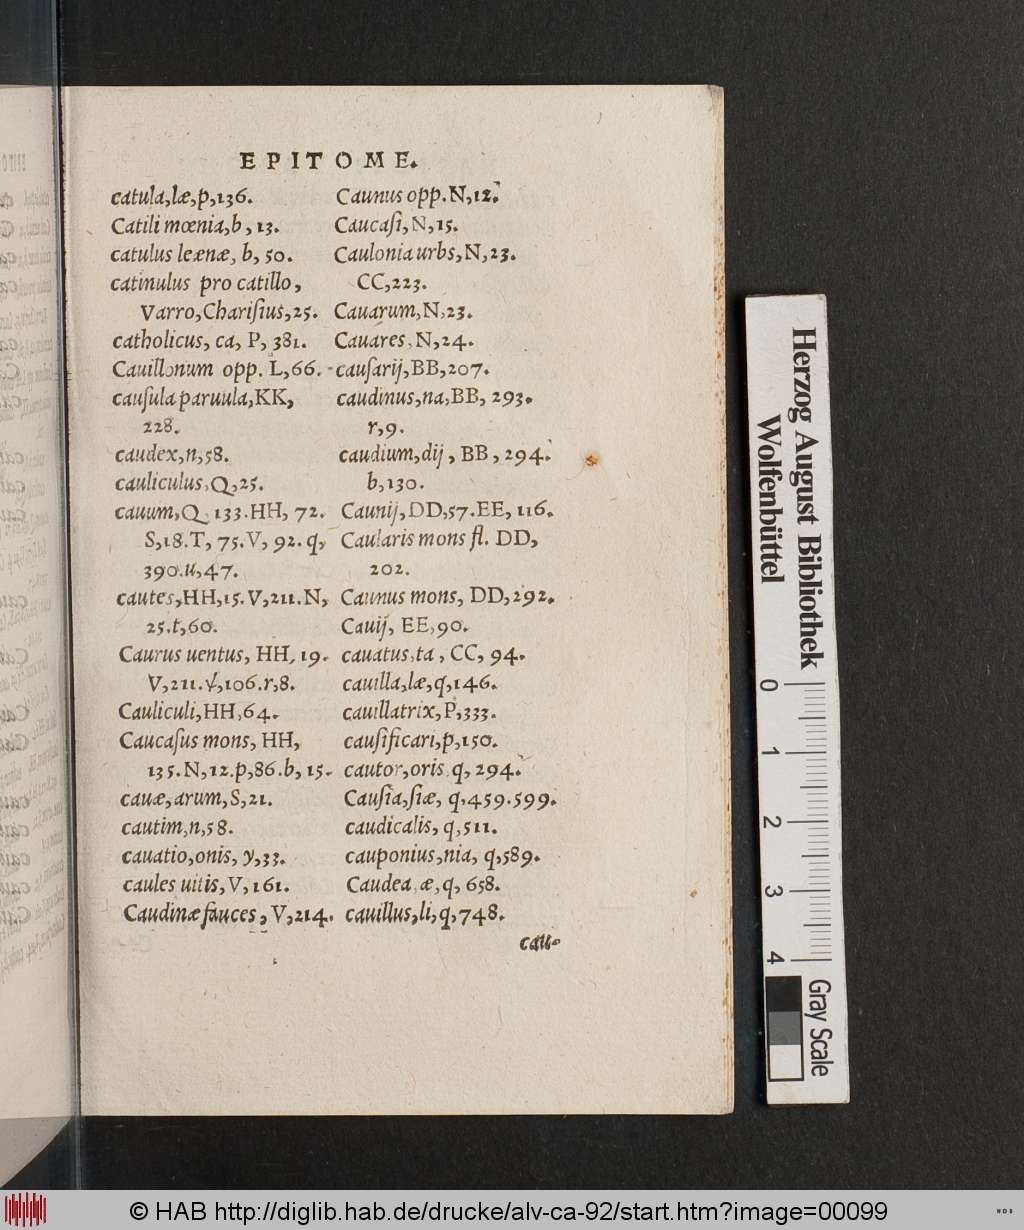 EPITOME.
catula,læ,p,136.
Catili mœnia,b,13.
catulus leænæ, b, 50.
catinulus pro catillo,
Varro,Chariſius,25.
catholicus, ca, P, 381.
Cauillonum opp. L,66.
cauſula paruula,KK,
228.
caudex,n,58.
cauliculus,Q,25.
cauum,Q 133.HH, 72.
S,18.T, 75.V, 92.q,
390.u,47.
cautes,HH,15.V,211.N,
25.t,60.
Caurus uentus, HH, 19.
V,211.ſ,106.r,8.
Cauliculi,HH,64.
Caucaſus mons, HH,
135.N,12.p,86.b, 15.
cauæ,arum,S,21.
cautim,n,58.
cauatio,onis, y,33.
caules uitis,V, 161.
Caudinæ fauces, V,214.
Caunus opp.N,12.
Caucaſi,N,15.
Caulonia urbs,N,23.
CC,223.
Cauarum,N,23.
Cauares,N,24.
cauſarij,BB,207.
caudinus,na,BB, 293.
r,9.
caudium,dij, BB, 294.
b,130.
Caunij,DD,57.EE, 116.
Caularis mons fl. DD,
202.
Caunus mons, DD,292.
Cauij, EE,90.
cauatus,ta, CC, 94.
cauilla,læ,q,146.
cauillatrix,P,333.
cauſificari,p,150.
cautor,oris q, 294.
Cauſia,ſiæ, q,459.599.
caudicalis, q,511.
cauponius,nia, q,589.
Caudea,æ,q, 658.
cauillus,li,q,748.
cau-
Herzog August Bibliothek
Wolfenbüttel
0
1
2
3
4
Gray Scale
© HAB http://diglib.hab.de/drucke/alv-ca-92/start.htm?image=00099